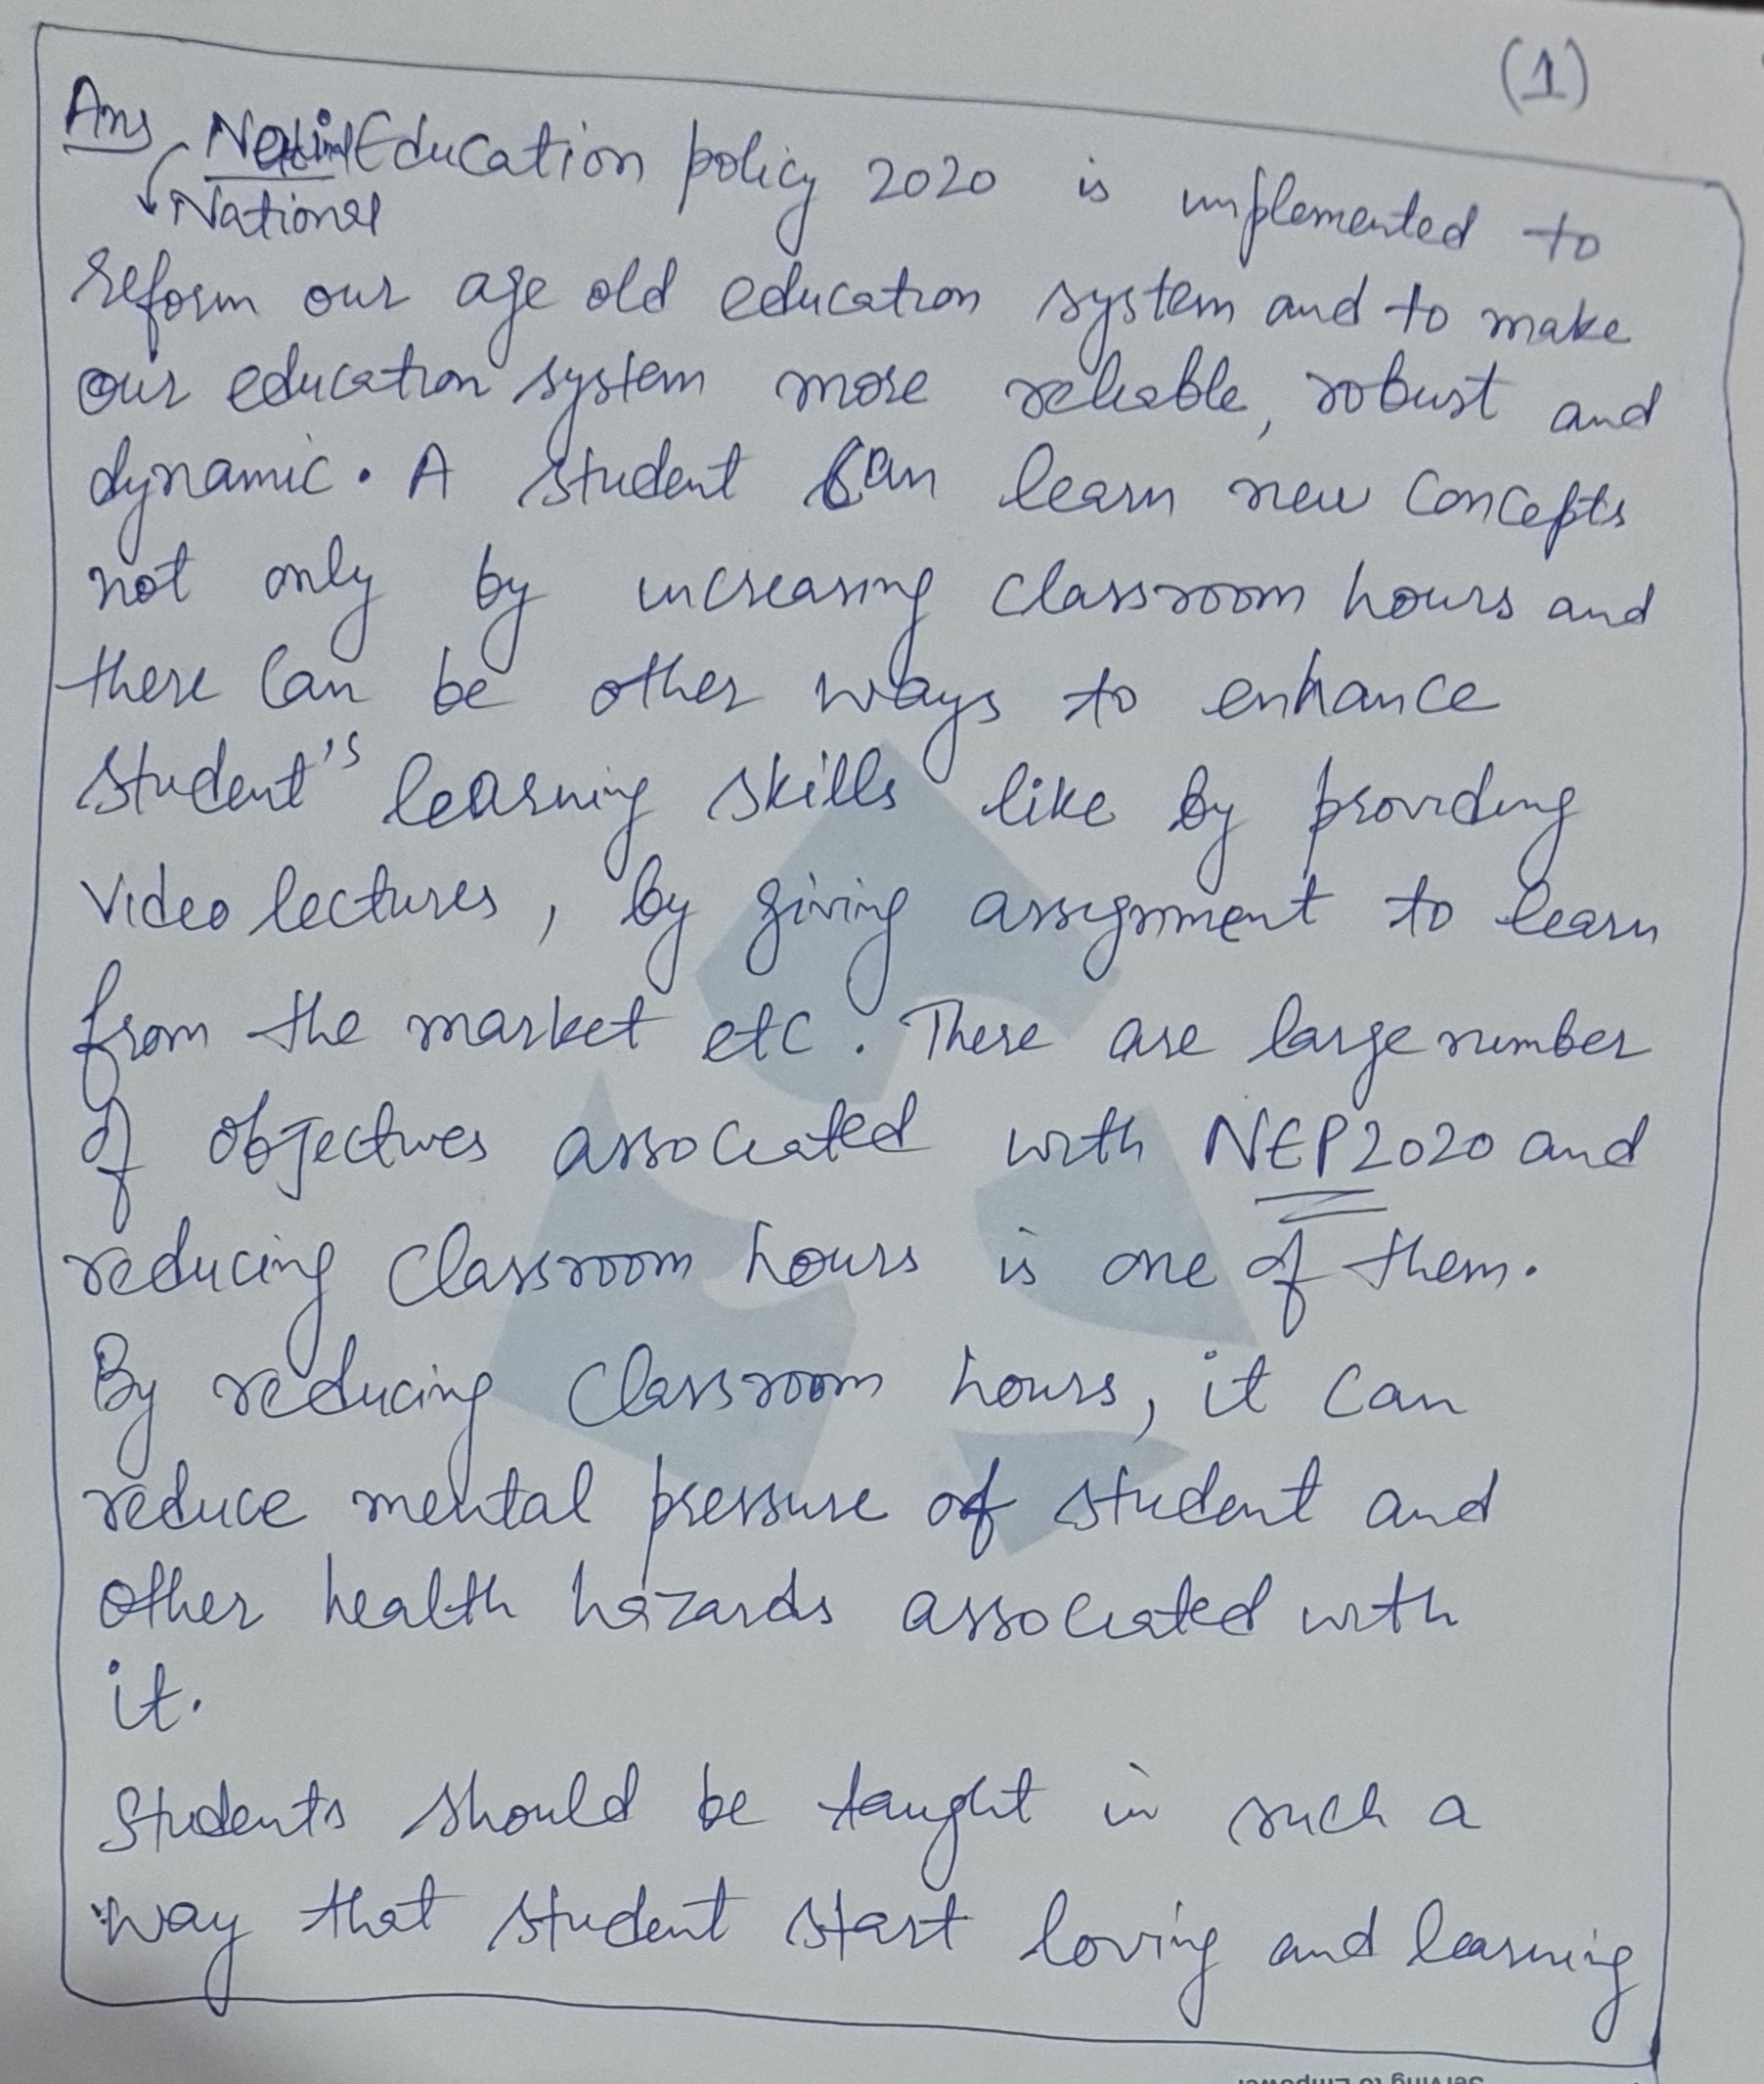 (1)
Ans National Education policy 2020 is implemented to
National
reform our age old education system and to make
our education system more reliable, robust and
dynamic. A student can learn new concepts
not only by increasing classroom hours and
there can be other ways to enhance
student's learning skills like by providing
video lectures, by giving assignment to learn
from the market etc. There are large number
of objectives associated with NEP 2020 and
reducing classroom hours is one of them.
By reducing classroom hours, it can
reduce mental pressure of student and
other health hazards associated with
it.
Students should be taught in such a
way that student start loving and learning
Serving to Empower